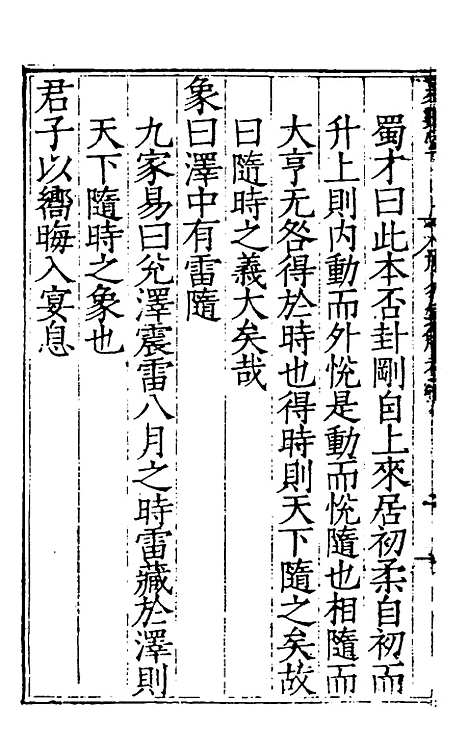 蜀才曰此本否卦剛自上來居初柔自初而
升上則内動而外恱是動而恱隨也相隨而
大亨无咎得於時也得時則天下隨之矣故
曰隨時之義大矣哉
象曰澤中有雷隨
九家易曰兊澤震雷八月之時雷藏於澤則
天下隨時之象也
君子以嚮晦入宴息